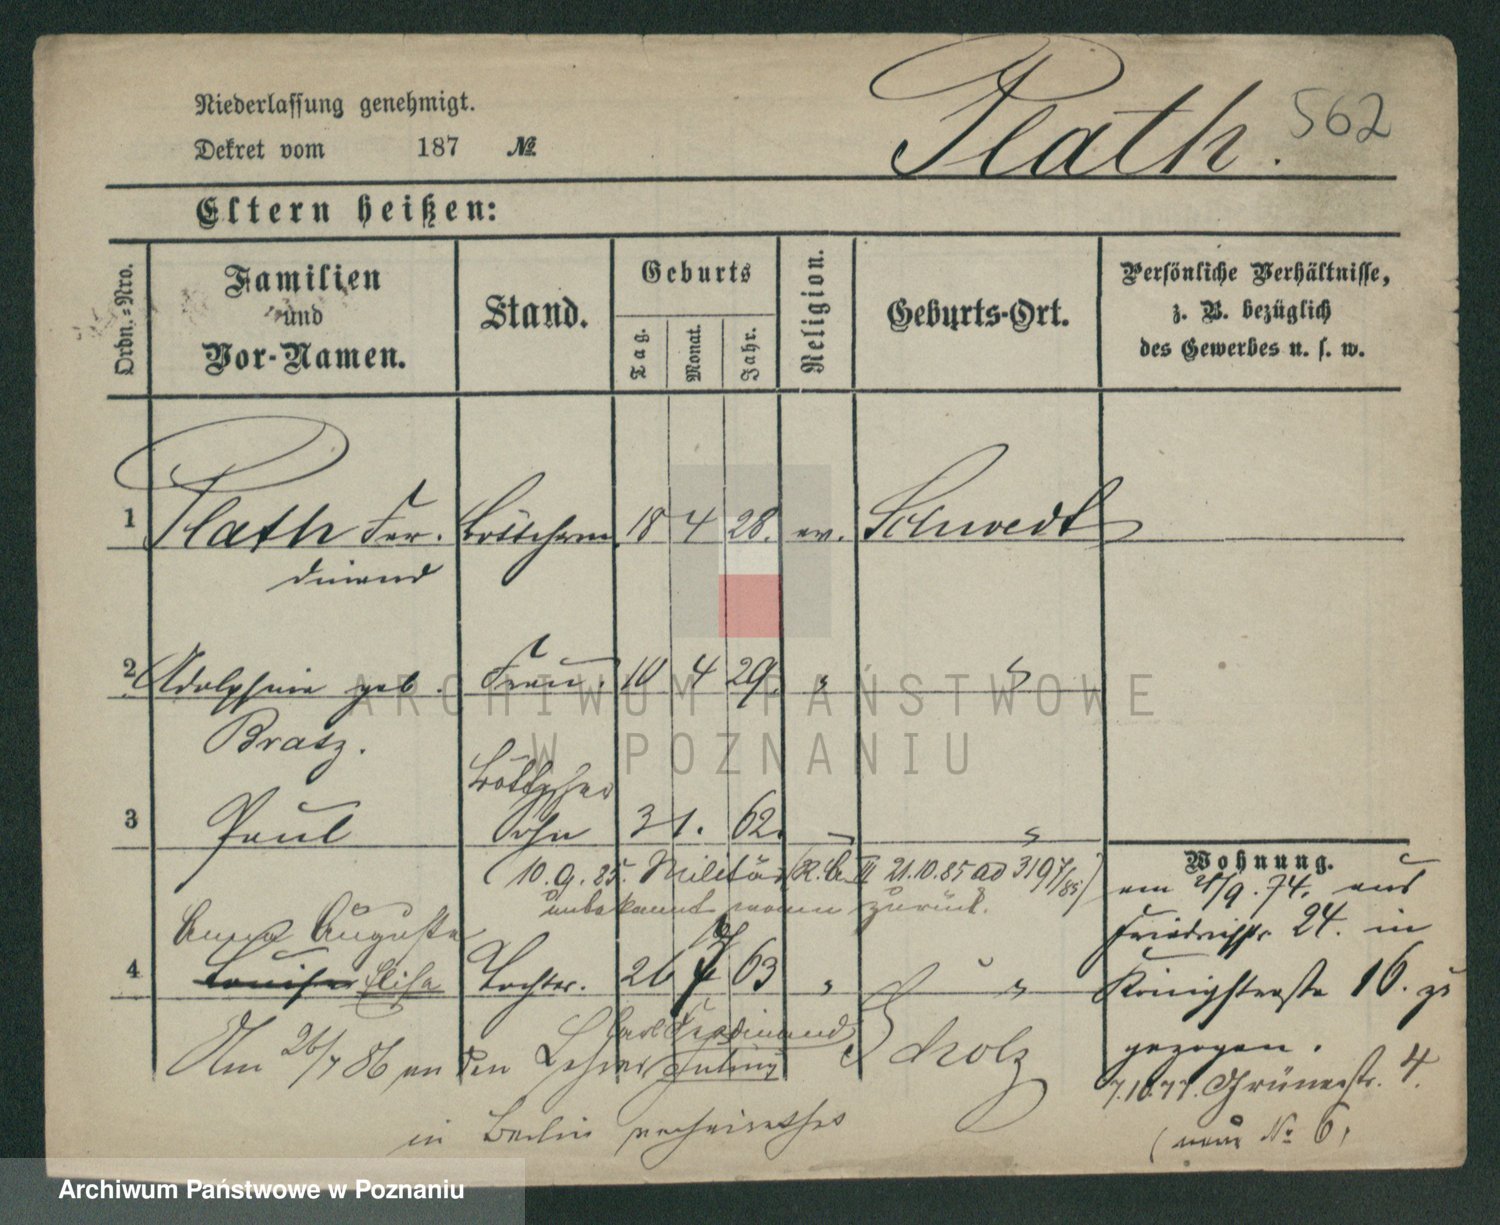 562
Plath.
Niederlassung genehmigt.
Dekret vom 187 №
Eltern heißen:
Ordn.-Nro.
Familien
und
Vor-Namen.
Stand.
Geburts
Tag.
Monat.
Jahr.
Religion.
Geburts-Ort.
Persönliche Verhältnisse,
z. B. bezüglich
des Gewerbes u. s. w.
1 Plath Fer- Böttcherm. 18 4 28. ev. Schwedt
dinand
2 Adolphine geb. Frau. 10 4 29. " "
Bratz.
Böttcher
3 Paul Sohn 3 1. 62. " "
(10.9.85. Militär (R. III 21.10.85 ad 3197/85)
unbekannt wann zurück.
Anna Auguste
4 Louise Elise Tochter. 26 7 63 " "
Am 26/7 86 an den Lehrer Carl Ferdinand
Julius Scholz
in Berlin verheirathet
Wohnung.
am 21/9. 74. aus
Friedrichstr. 24. in
Königstraße 16. zu
gezogen.
7.10.77. Grünestr. 4.
(neue No 6.
ARCHIWUM PAŃSTWOWE
W POZNANIU
Archiwum Państwowe w Poznaniu